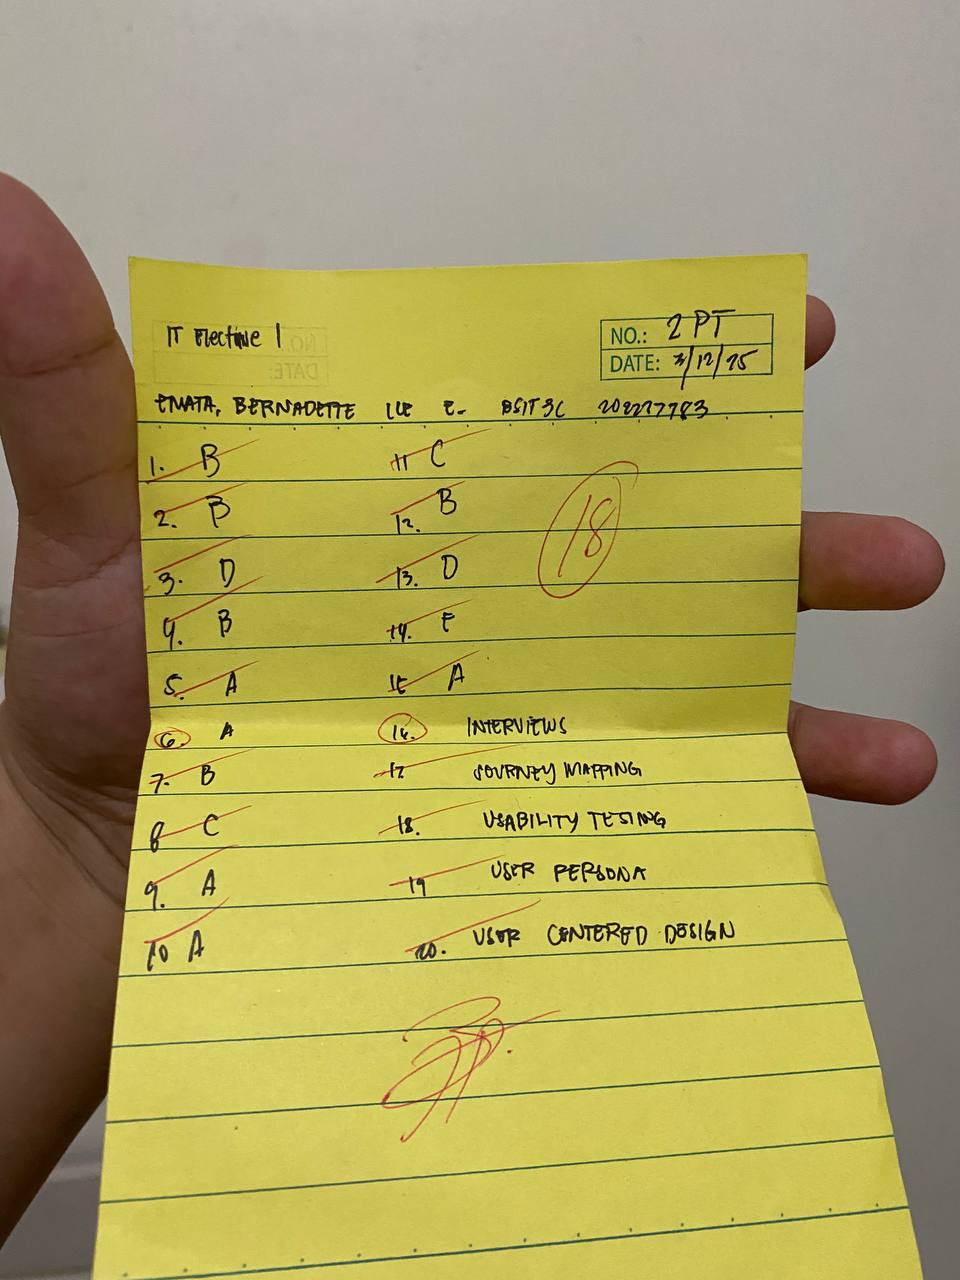 IT Elective 1
NO.: 2 PT
DATE: 3/12/25
EMATA, BERNADETTE E. BSIT 3C 202227783
1. B
2. B
3. D
4. B
5. A
6. A
7. B
8 C
9. A
10 A
11 C
12. B
13. D
14. E
15 A
16. INTERVIEWS
17 JOURNEY MAPPING
18. USABILITY TESTING
19 USER PERSONA
20. USER CENTERED DESIGN
18